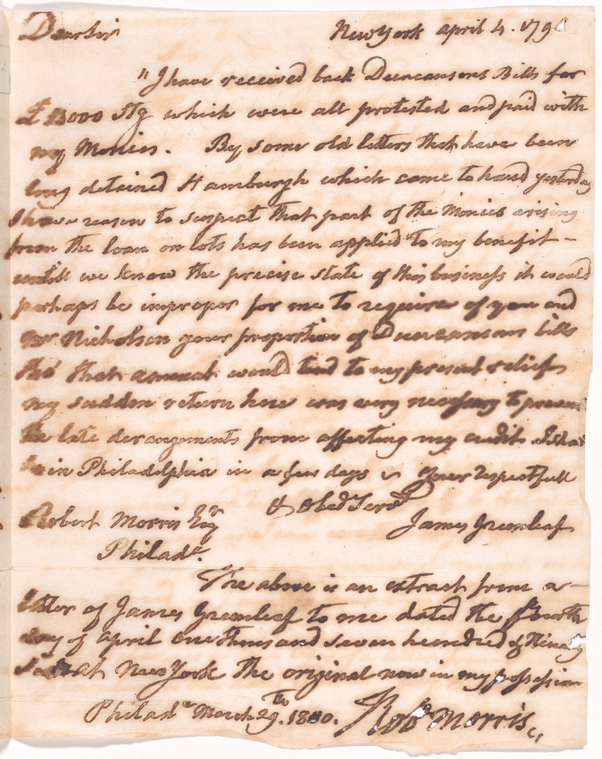 Dear Sir New York april 4. 179
"I have received back Duncansons Bills for
£ 12000 Stg which were all protested and paid with
my Monies. By some old letters that have been
long detained Hamburgh which came to hand yesterday
I have reason to suspect that part of the Monies arising
from the loan on lots has been applied to my benefit –
untill we know the precise state of this business it would
perhaps be improper for me to require of you and
Mr. Nicholson your proportion of Duncansons bills
tho' that amount would tend to my present relief
my sudden return here was very necessary to prevent
the late derangements from affecting my credit. I shall
be in Philadelphia in a few days – Your respectfull
& obed Servt
Robert Morris Esqr James Greenleaf
Philada.
The above is an extract from a –
letter of James Greenleaf to me dated the fourth
day of april one thousand seven hundred & Ninety
at New York the original now in my possession
Philada March 29th. 1800. Robt Morris